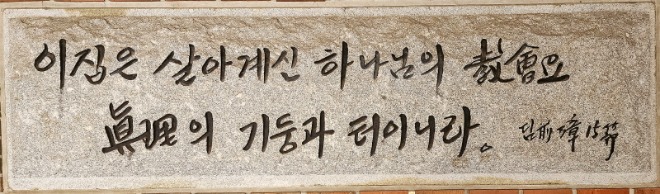 이집은 살아계신 하나님의 敎會요
眞理의 기둥과 터이니라。 딤前 3章 15節